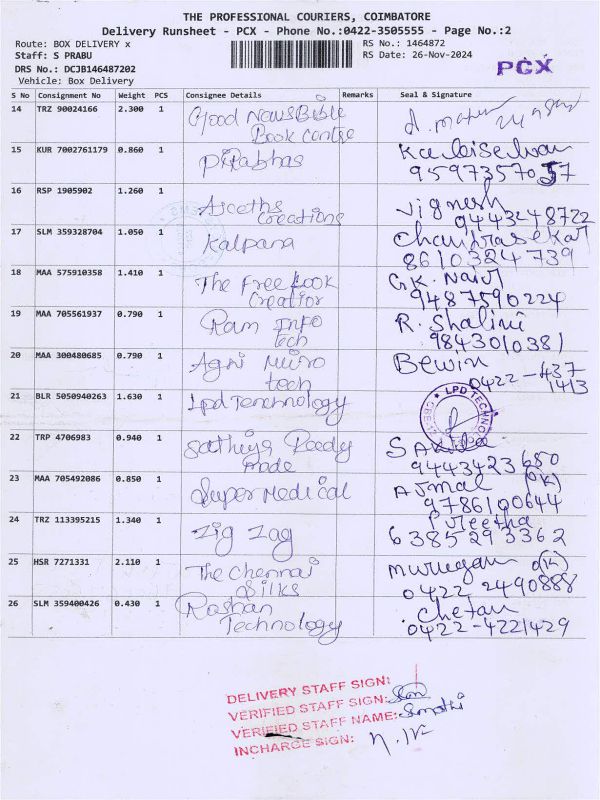 THE PROFESSIONAL COURIERS, COIMBATORE
Delivery Runsheet - PCX - Phone No.:0422-3505555 - Page No.:2
Route: BOX DELIVERY x
RS No.: 1464872
Staff: S PRABU
RS Date: 26-Nov-2024
DRS No.: DCJB146487202
Vehicle: Box Delivery
PCX
S No Consignment No Weight PCS Consignee Details Remarks Seal & Signature
14 TRZ 90024166 2.300 1 Good News Bible
Book Centre
15 KUR 7002761179 0.860 1 Kalaiselvan
9597357057
16 RSP 1905902 1.260 1 Vignesh
Creations 9443248722
17 SLM 359328704 1.050 1 Kalpana Chandrasekar
8610324739
18 MAA 575910358 1.410 1 The Free Look G.K. Nair
Creation 9487590224
19 MAA 705561937 0.790 1 Ram Info R. Shalini
tech 9843010381
20 MAA 300480685 0.790 1 Agni Micro Bewin
tech 0422-437
1413
21 BLR 5050940263 1.630 1 Lpd Technology LPD TECHNO
22 TRP 4706983 0.940 1 Sathiya Ready
made 9443423680
23 MAA 705492086 0.850 1 Super Medical Ajmal
9786100644
24 TRZ 113395215 1.340 1 Zig Zag Preetha
6385293362
25 HSR 7271331 2.110 1 The Chennai Murugan
Silks 0422 2490888
26 SLM 359400426 0.430 1 Roshan Chetan
Technology 0422-4221429
DELIVERY STAFF SIGN:
VERIFIED STAFF SIGN:
VERIFIED STAFF NAME: Sumathi
INCHARGE SIGN: